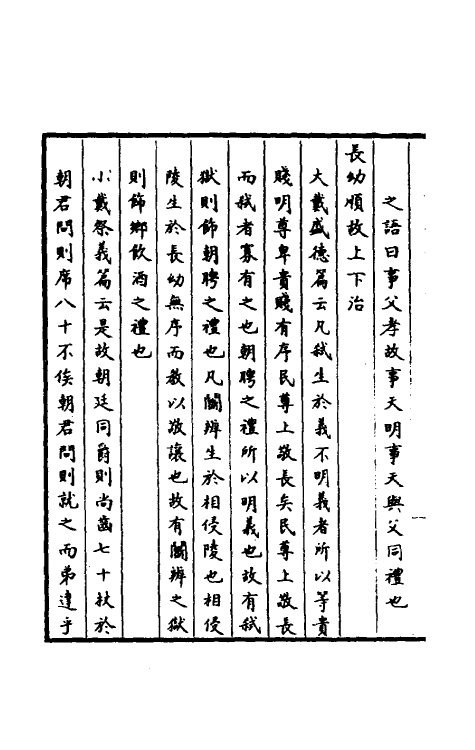 之語曰事父孝故事天明事天與父同禮也
長幼順故上下治
大戴盛德篇云凡弒生於義不明義者所以等貴
賤明尊卑貴賤有序民尊上敬長矣民尊上敬長
而弒者寡有之也朝聘之禮所以明義也故有弒
獄則飾朝聘之禮也凡鬭辨生於相侵陵也相侵
陵生於長幼無序而教以敬讓也故有鬭辨之獄
則飾鄉飲酒之禮也
小戴祭義篇云是故朝廷同爵則尚齒七十杖於
朝君問則席八十不俟朝君問則就之而弟達乎